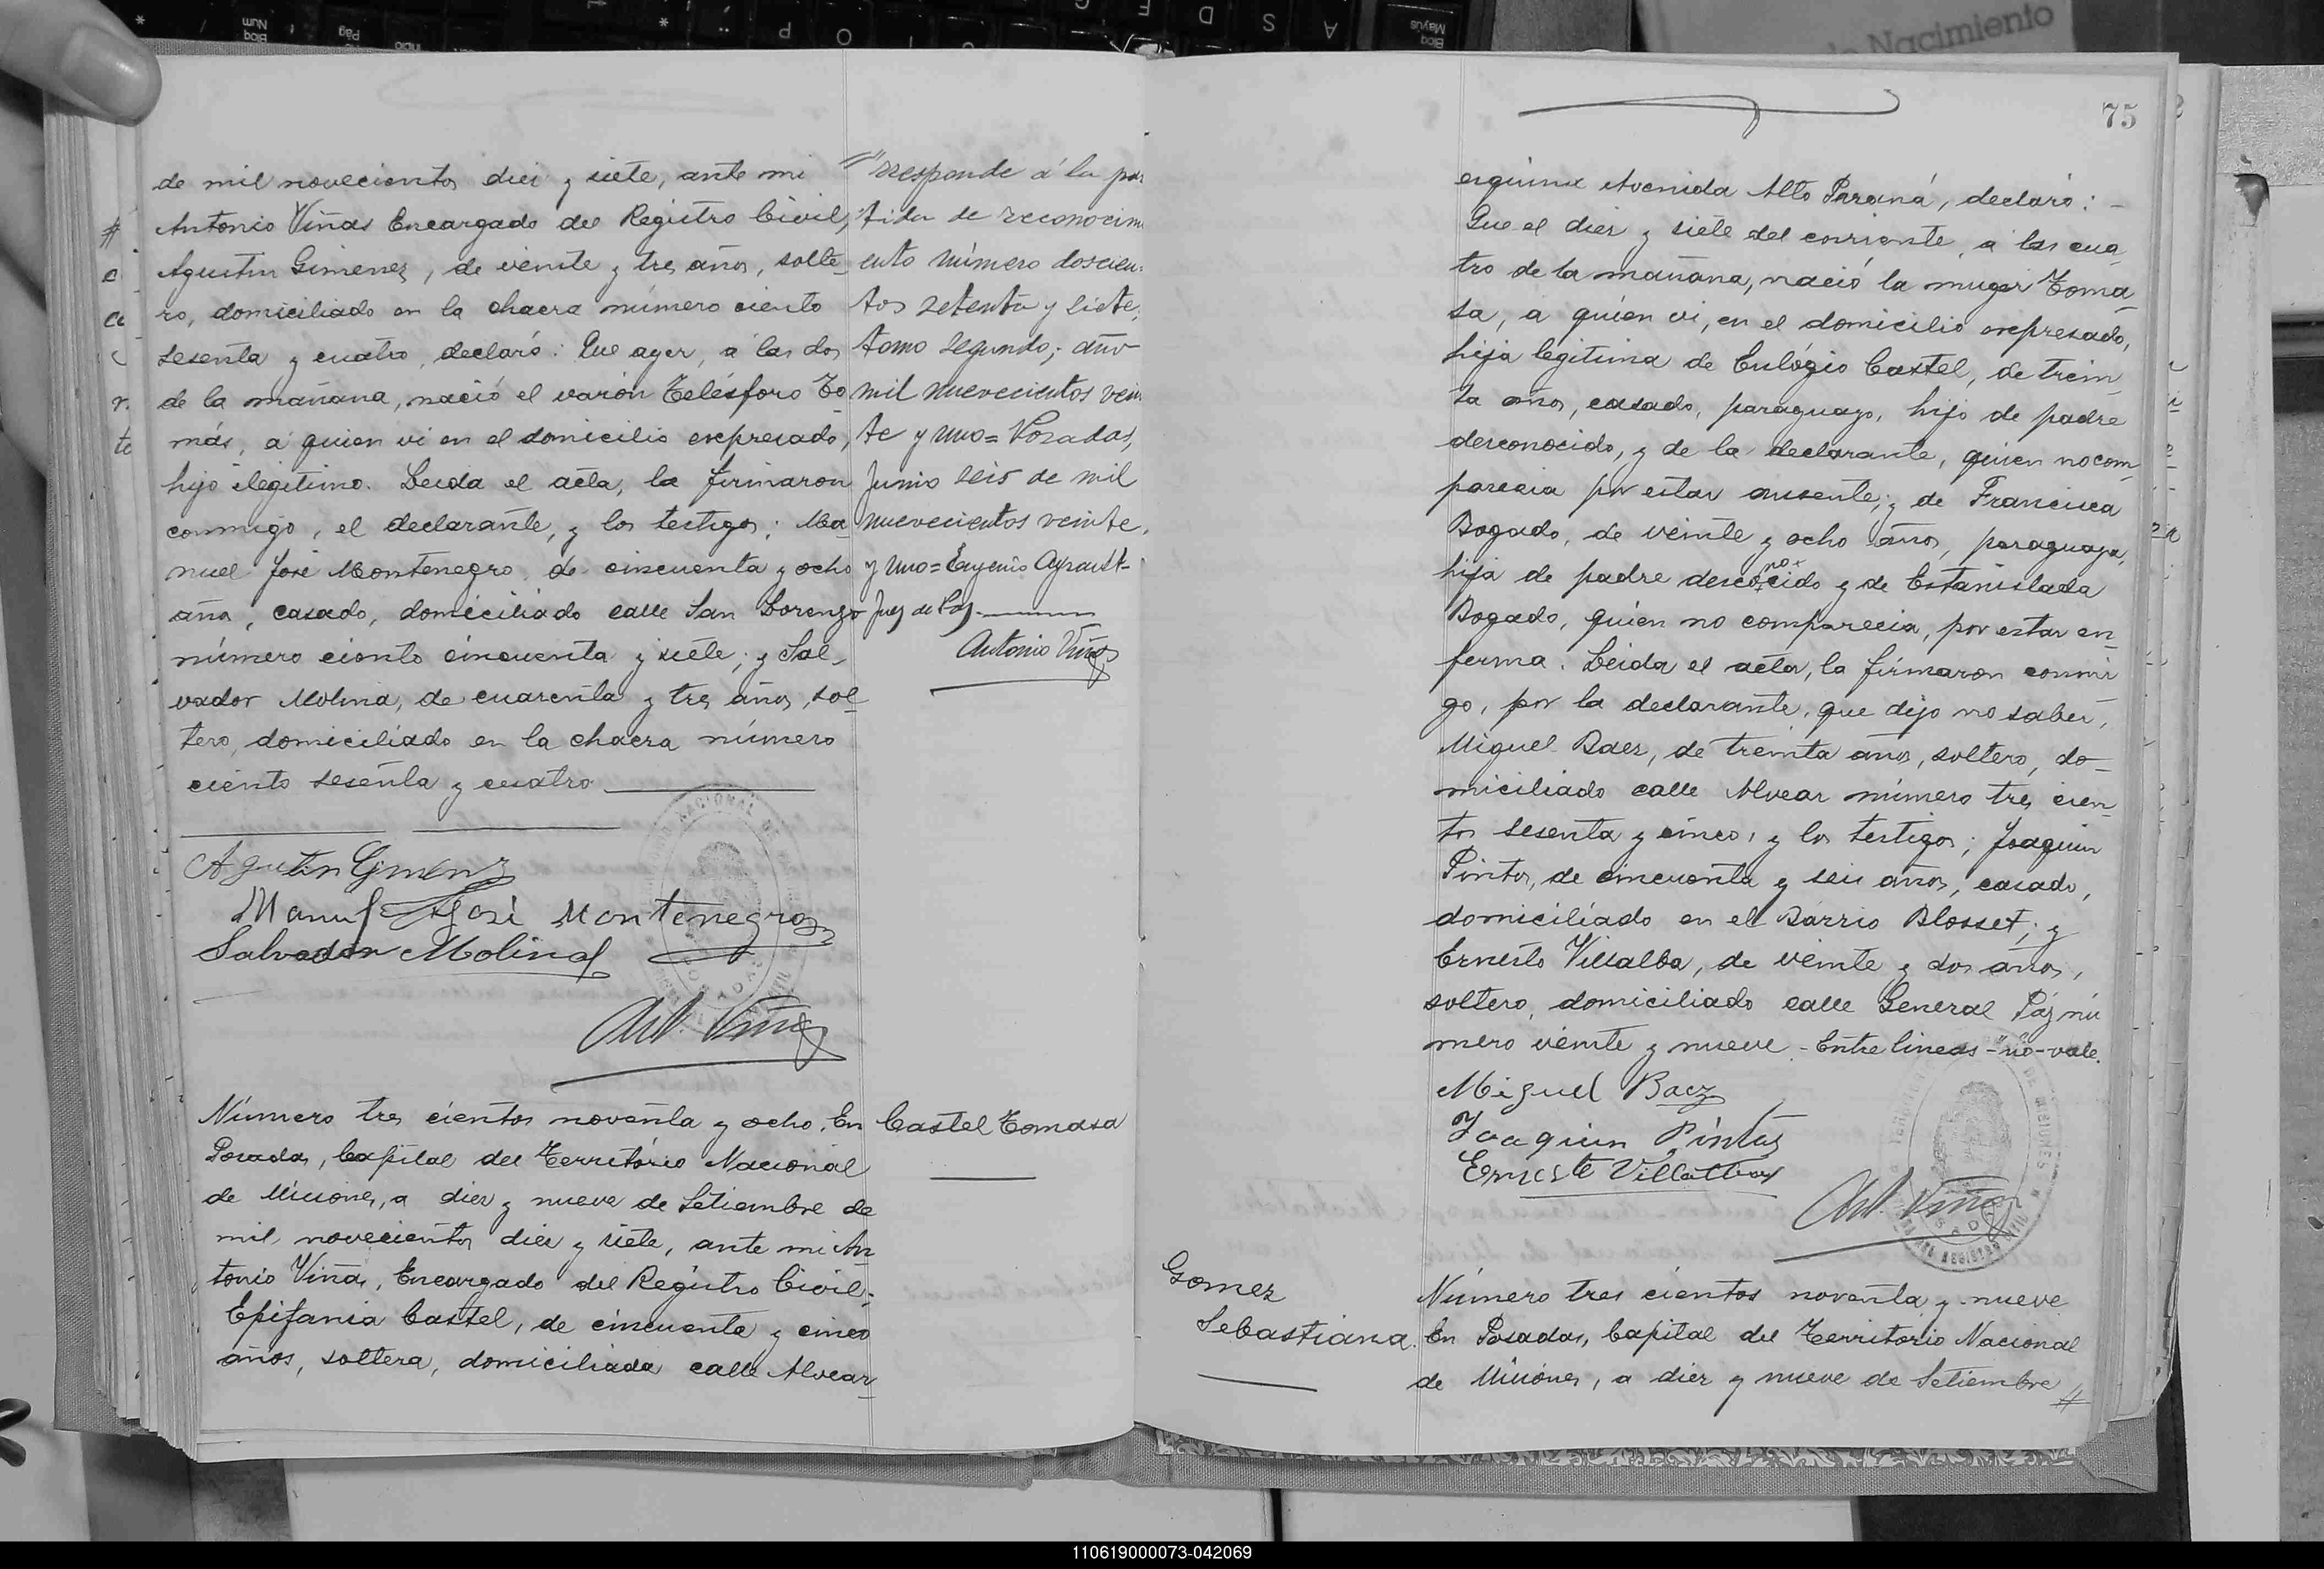 de mil novecientos diez y siete, ante mi
Antonio Viñas Encargado del Registro Civil,
Agustin Gimenez, de veinte y tres años, solte-
ro, domiciliado en la chacra número ciento
sesenta y cuatro, declaró: Que ayer, a las dos
de la mañana, nació el varón Telésforo To
más, a quien vi en el domicilio expresado,
hijo ilegitimo. Leida el acta, la firmaron
conmigo, el declarante, y los testigos: Ma-
nuel José Montenegro, de cincuenta y ocho
años, casado, domiciliado calle San Lorenzo
número ciento cincuenta y siete; y Sal-
vador Molina, de cuarenta y tres años, sol-
tero, domiciliado en la chacra número
ciento sesenta y cuatro
Agustin Gimenz
Manuel José Montenegro
Salvador Molina
Ant. Viñas
rresponde á la par
tida de reconocim
ento número doscien-
tos setenta y siete,
tomo segundo; año
mil nuevecientos vein
te y uno= Posadas,
Junio seis de mil
nuevecientos veinte
y uno=Eugenio
Juez de Paz.
Antonio Viñas
Número tres cientos noventa y ocho. En
Posadas, Capital del Território Nacional
de Misiones, a diez y nueve de Setiembre de
mil novecientos diez y siete, ante mi An
tonio Viñas, Encargado del Registro Civil-
Epifania Castel, de cincuenta y cinco
años, soltera, domiciliada calle Alvear
Castel Tomasa
75
esquina Avenida Alto Paraná, declaró: -
Que el diez y siete del corriente, a las cua
tro de la mañana, nació la muger Toma
sa, a quien vi, en el domicilio expresado,
hija legitima de Eulógio Castel, de trein
ta años, casado, paraguayo, hijo de padre
desconocido, y de la declarante, quien no com
parecia por estar ausente; y de Francisca
Bogado, de veinte y ocho años, paraguaya,
hija de padre descocido y de Estanislada
no
Bogado, quien no comparecia, por estar en
ferma. Leida el acta, la firmaron conmi
go, por la declarante, que dijo no saber,
Miguel Baez, de treinta años, soltero, do-
miciliado calle Alvear número tres cien
tos sesenta y cinco, y los testigos; Joaquin
Pintos, de cincuenta y seis años, casado,
domiciliado en el Bárrio Blosset; y
Ernesto Villalba, de veinte y dos años,
soltero, domiciliado calle General Páz nú
mero veinte y nueve.-Entre lineas-"no-vale.
Miguel Baez
Joaquin Pintos
Ernesto Villalba
Ant. Viñas
Gomez
Sebastiana.
Número tres cientos noventa y nueve
En Posadas, Capital del Território Nacional
de Misiones, a diez y nueve de Setiembre
de Nacimiento
110619000073-042069